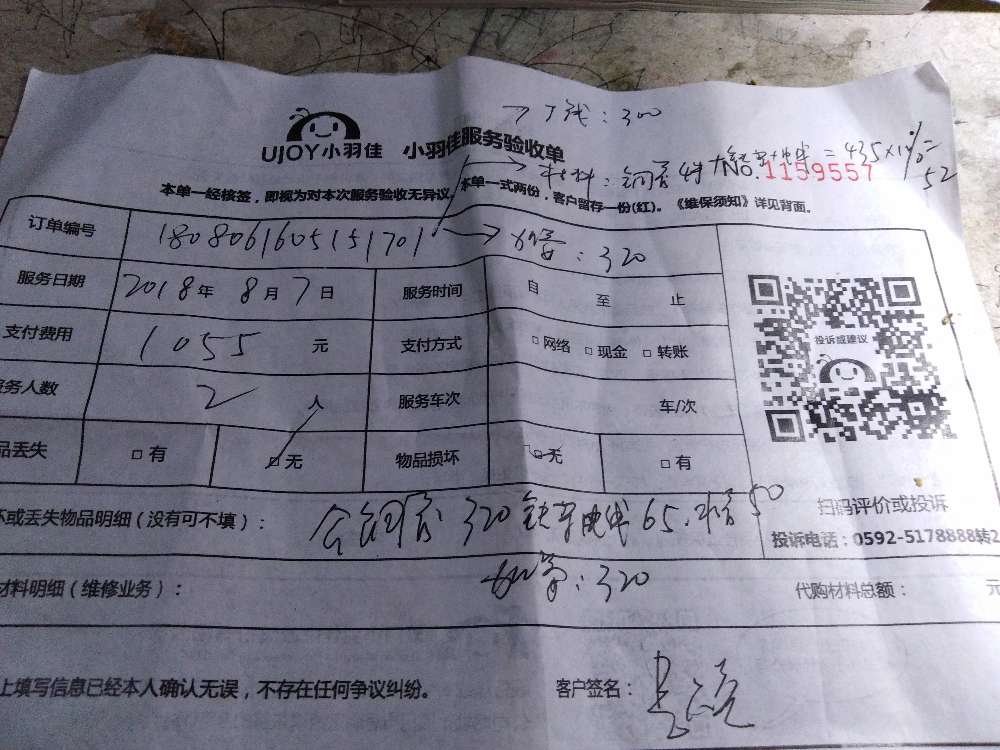 工钱：300
UJOY小羽佳 小羽佳服务验收单
材料：铜管 = 435×12%=
52
No.1159557
本单一经核签，即视为对本次服务验收无异议，本单一式两份，客户留存一份(红)。《维保须知》详见背面。
订单编号 1808061605151701 :320
服务日期 2018年 8月 7日 服务时间 自 至 止
支付费用 1055 元 支付方式 □网络 □现金 □转账
投诉或建议
务人数 2 人 服务车次 车/次
品丢失 □有 □无 物品损坏 □无 □有
扫码评价或投诉
坏或丢失物品明细（没有可不填）： 铜管 320 电线 65. 50
投诉电话：0592-5178888转2
:320
材料明细（维修业务）： 代购材料总额： 元
上填写信息已经本人确认无误，不存在任何争议纠纷。 客户签名：